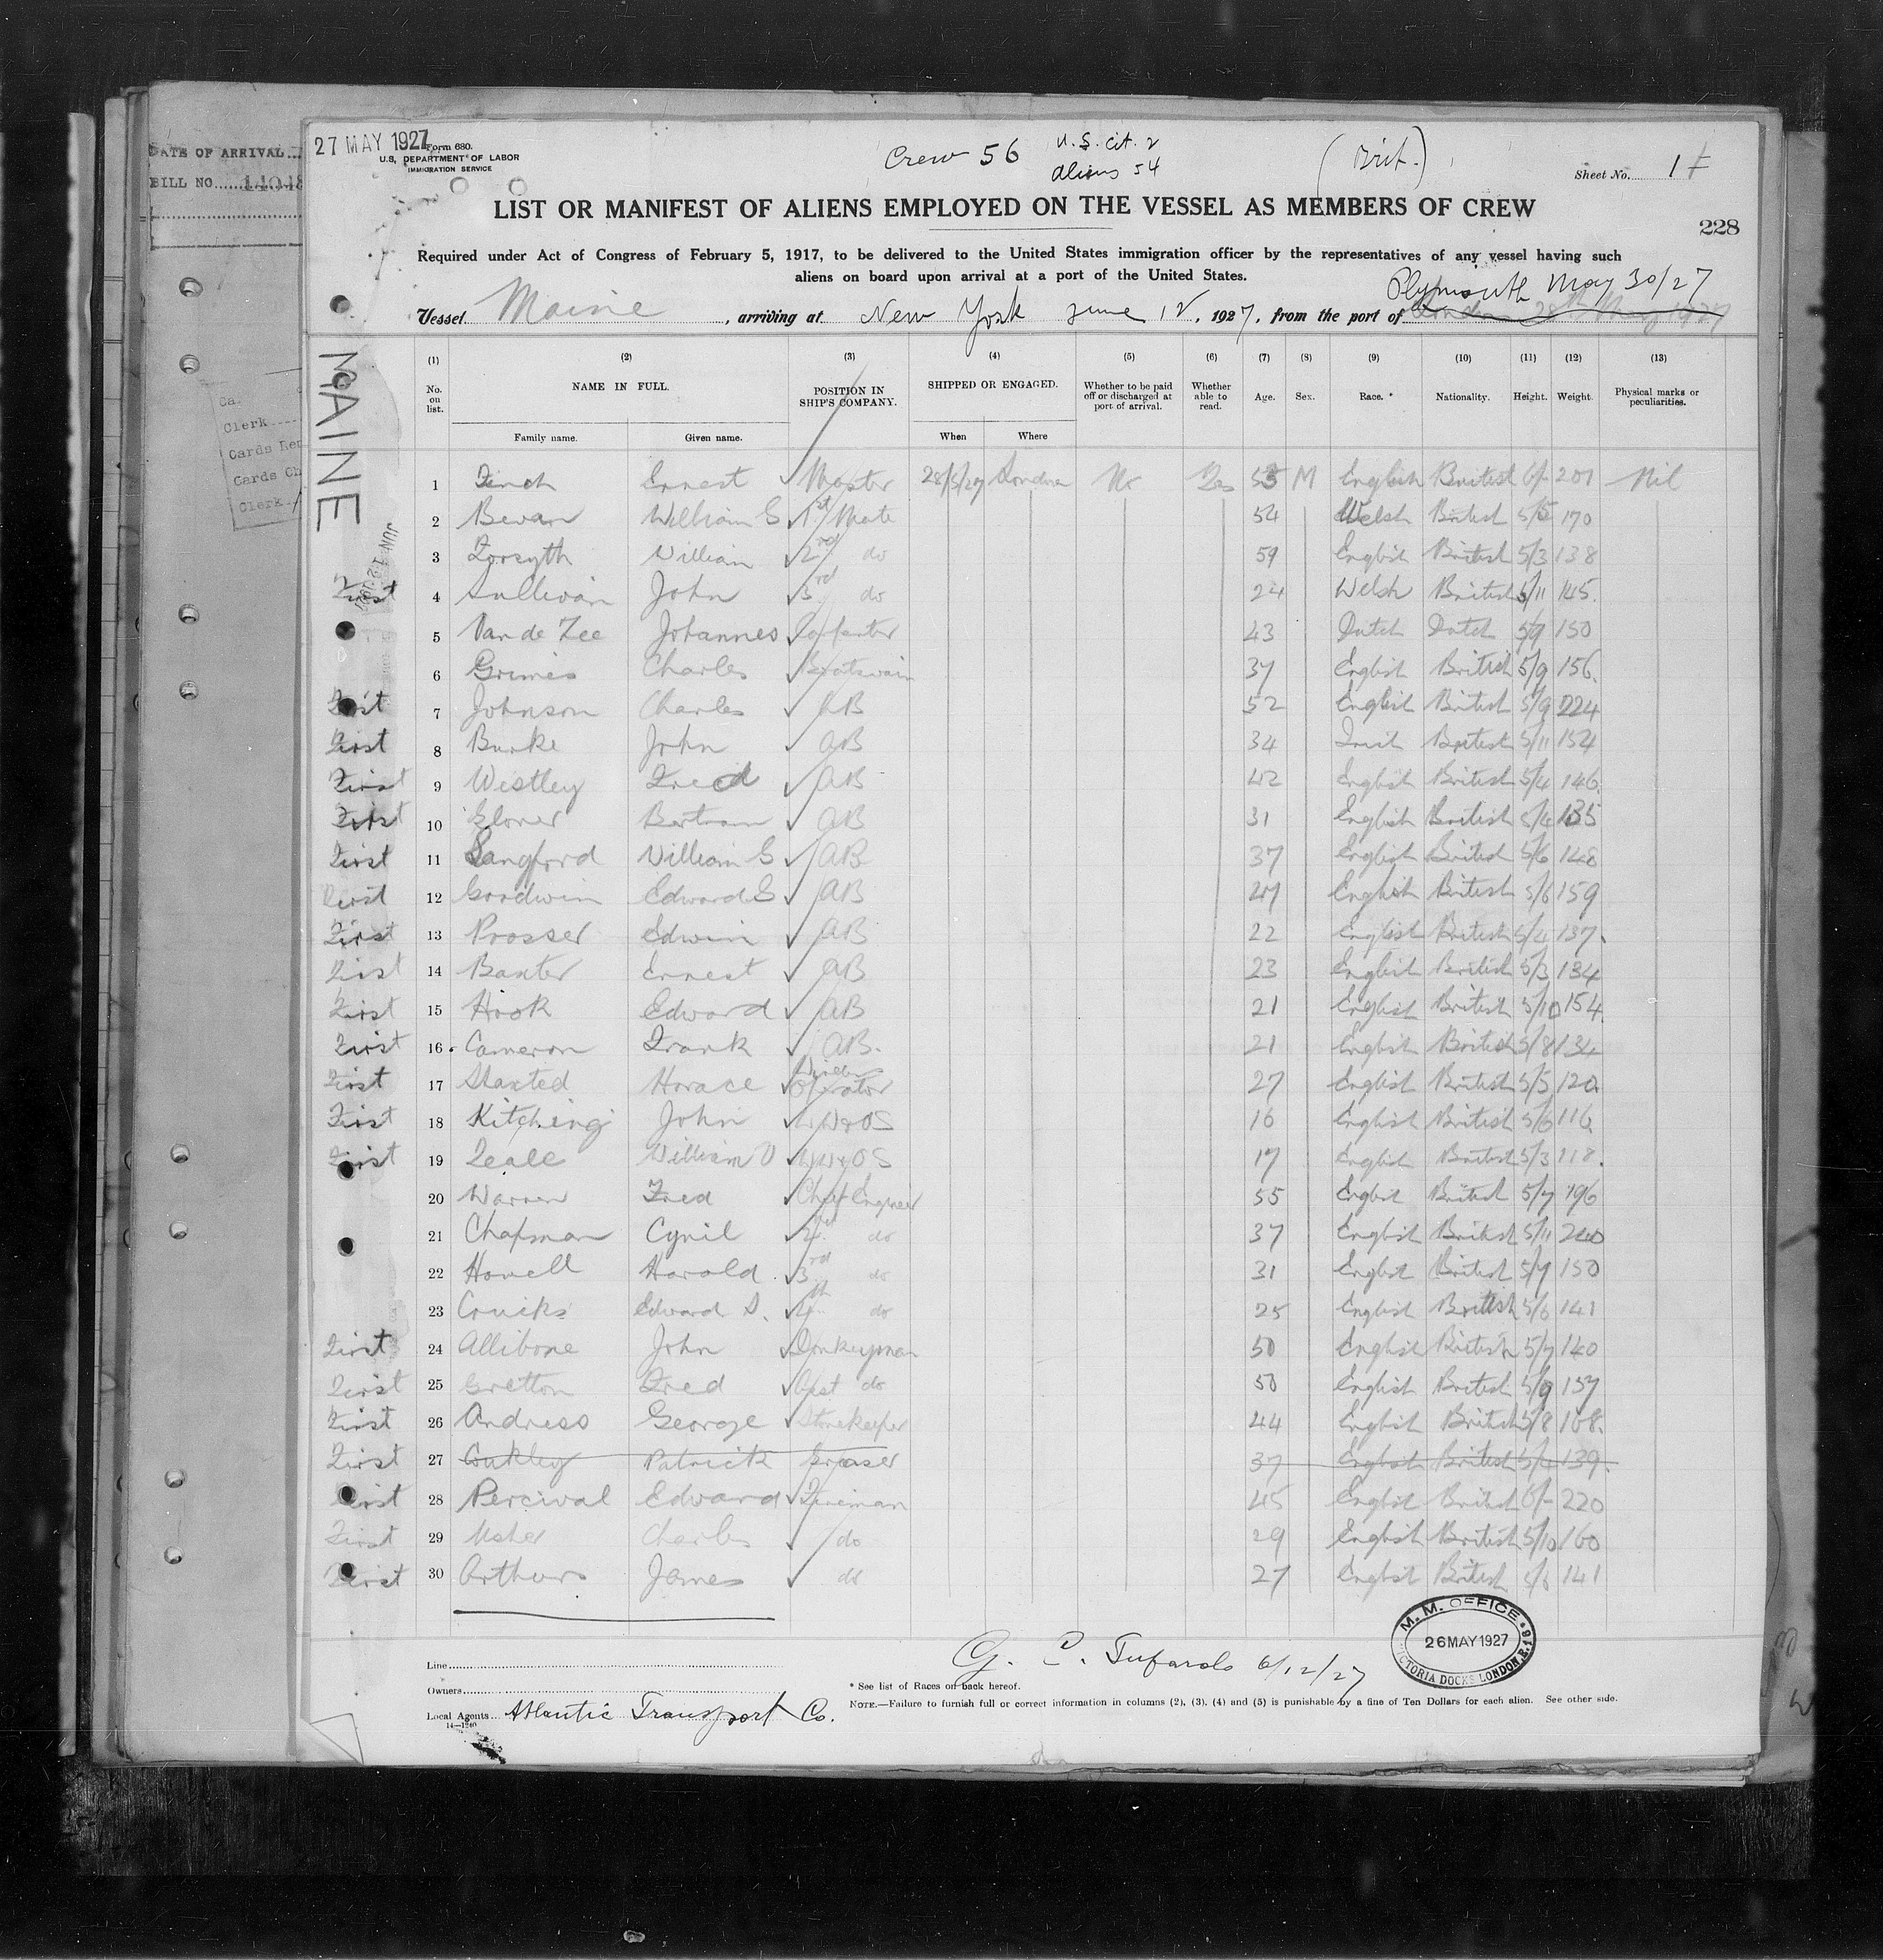 DATE OF ARRIVAL
BILL NO. 14048
Ca.
Clerk
Cards Ret
Cards Ch
Clerk
27 MAY 1927
Form 680.
U.S. DEPARTMENT OF LABOR
IMMIGRATION SERVICE
Crew 56 U.S. cit. 2
aliens 54
(Brit.)
Sheet No. 1
LIST OR MANIFEST OF ALIENS EMPLOYED ON THE VESSEL AS MEMBERS OF CREW
228
Required under Act of Congress of February 5, 1917, to be delivered to the United States immigration officer by the representatives of any vessel having such
aliens on board upon arrival at a port of the United States.
Plymouth May 30/27
Vessel Maine, arriving at New York June 12, 1927, from the port of London 28th May 1927
MAINE
JUN 12 1927
(1) (2) (3) (4) (5) (6) (7) (8) (9) (10) (11) (12) (13)
No. on list. NAME IN FULL. POSITION IN SHIP'S COMPANY. SHIPPED OR ENGAGED. Whether to be paid off or discharged at port of arrival. Whether able to read. Age. Sex. Race.* Nationality. Height. Weight. Physical marks or peculiarities.
Family name. Given name. When Where
1 Finch Ernest Master 28/5/27 London No Yes 53 M English British 6/- 201 Nil
2 Bevan William G 1st Mate 54 Welsh British 5/5 170
3 Forsyth William 2nd do 59 English British 5/3 138
First 4 Sullivan John 3rd do 24 Welsh British 5/11 145
5 Van de Zee Johannes Carpenter 43 Dutch Dutch 5/9 150
6 Grimes Charles Boatswain 37 English British 5/9 156
First 7 Johnson Charles AB 52 English British 5/9 224
First 8 Burke John AB 34 Irish British 5/11 154
First 9 Westley Fred AB 42 English British 5/4 146
First 10 Glover Bertram AB 31 English British 5/4 135
First 11 Langford William G AB 37 English British 5/6 148
First 12 Goodwin Edward G AB 27 English British 5/6 159
First 13 Prosser Edwin AB 22 English British 5/4 137
First 14 Baxter Ernest AB 23 English British 5/3 134
First 15 Hook Edward AB 21 English British 5/10 154
First 16 Cameron Frank AB 21 English British 5/8 134
First 17 Staxted Horace Wireless Operator 27 English British 5/5 120
First 18 Kitching John 16 English British 5/6 116
First 19 William V 17 English British 5/3 118
20 Warren Fred Chief Engineer 55 English British 5/7 196
21 Chapman Cyril 2nd do 37 English British 5/11 240
22 Howell Harold 3rd do 31 English British 5/7 150
23 Edward 4th do 25 English British 5/6 141
First 24 Allibone John Donkeyman 50 English British 5/7 140
First 25 Gretton Fred Asst do 50 English British 5/9 157
First 26 Andress George Storekeeper 44 English British 5/8 168
First 27 Patrick Greaser 37 English British 5/4 139
First 28 Percival Edward Fireman 45 English British 6/- 220
First 29 Usher Charles do 29 English British 5/10 160
First 30 Arthurs James do 27 English British 5/6 141
M. M. OFFICE
26 MAY 1927
VICTORIA DOCKS LONDON, E.16
Line
Owners
Local Agents Atlantic Transport Co.
14—1240
6/12/27
* See list of Races on back hereof.
NOTE.—Failure to furnish full or correct information in columns (2), (3), (4) and (5) is punishable by a fine of Ten Dollars for each alien. See other side.